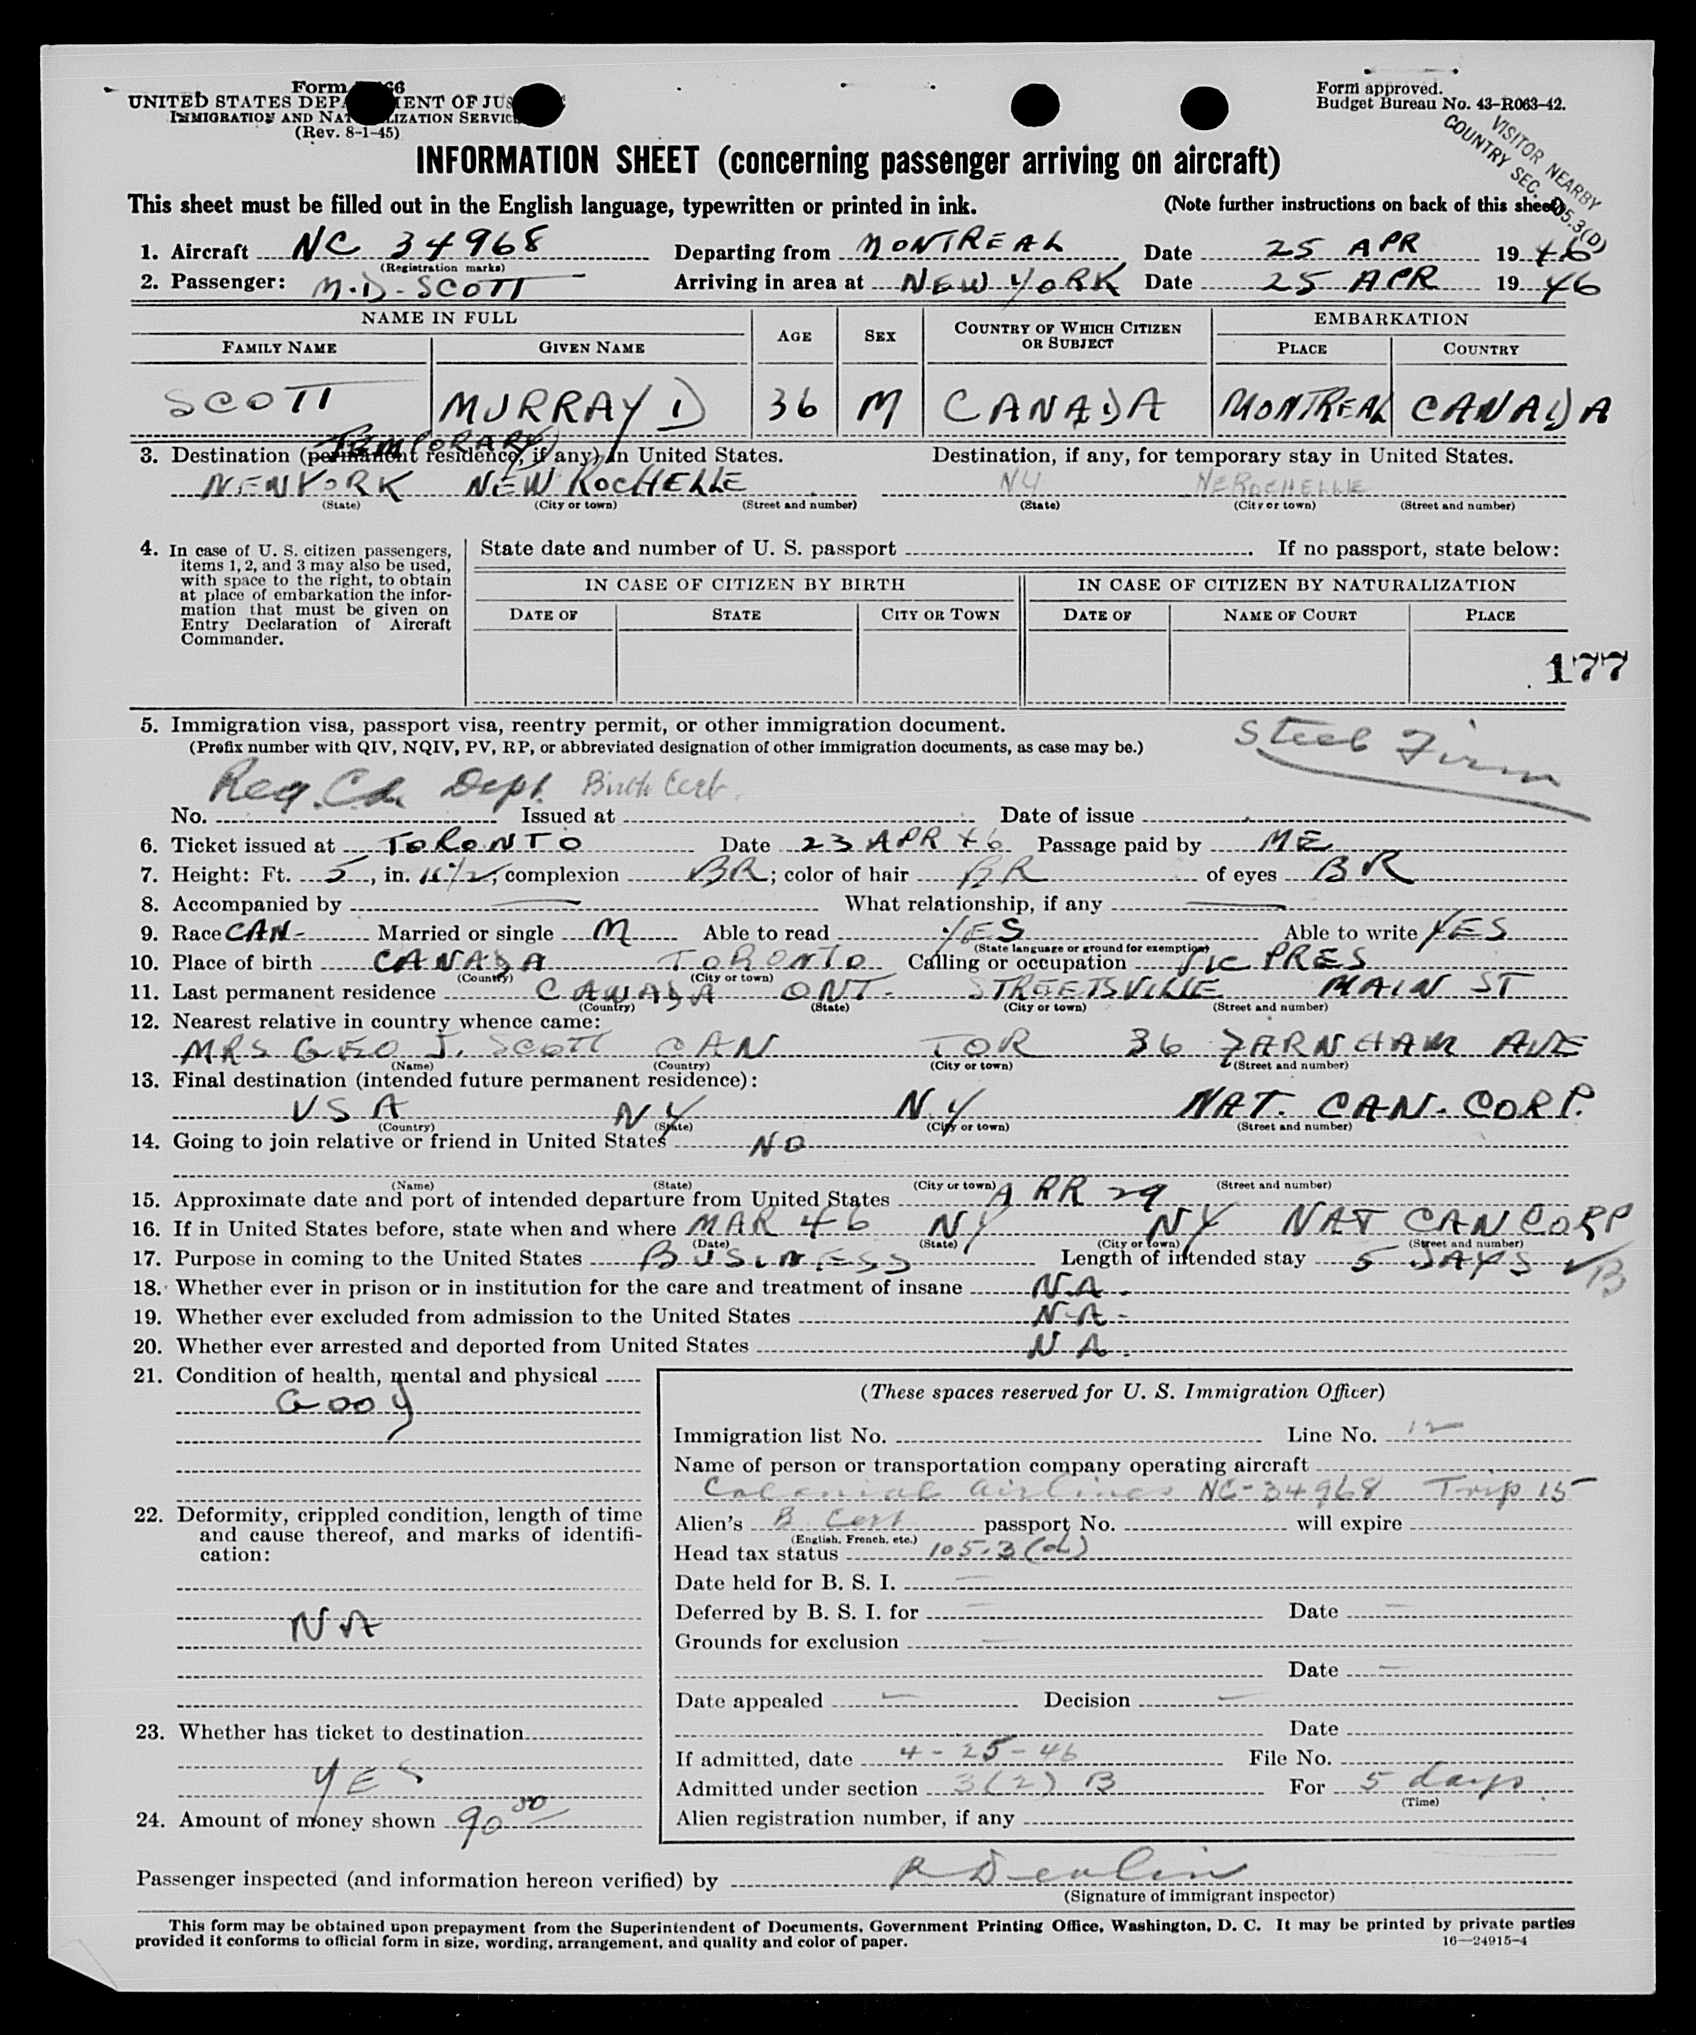 Form 66
UNITED STATES DEP MENT OF JUS
IMMIGRATION AND NAT LIZATION SERVIC
(Rev. 8-1-45)
Form approved.
Budget Bureau No. 43-R063-42.
VISITOR NEARBY
COUNTRY SEC. 105.3(D)
INFORMATION SHEET (concerning passenger arriving on aircraft)
This sheet must be filled out in the English language, typewritten or printed in ink. (Note further instructions on back of this sheet)
1. Aircraft NC 34968 Departing from MONTREAL Date 25 APR 1946
(Registration marks)
2. Passenger: M.D. SCOTT Arriving in area at NEW YORK Date 25 APR 1946
NAME IN FULL AGE SEX COUNTRY OF WHICH CITIZEN OR SUBJECT EMBARKATION
FAMILY NAME GIVEN NAME PLACE COUNTRY
SCOTT MURRAY D 36 M CANADA MONTREAL CANADA
TEMPORARY
3. Destination (permanent residence, if any) in United States. Destination, if any, for temporary stay in United States.
NEW YORK NEW ROCHELLE NY NE ROCHELLE
(State) (City or town) (Street and number) (State) (City or town) (Street and number)
4. In case of U. S. citizen passengers, items 1, 2, and 3 may also be used, with space to the right, to obtain at place of embarkation the information that must be given on Entry Declaration of Aircraft Commander.
State date and number of U. S. passport . If no passport, state below:
IN CASE OF CITIZEN BY BIRTH IN CASE OF CITIZEN BY NATURALIZATION
DATE OF STATE CITY OR TOWN DATE OF NAME OF COURT PLACE
177
5. Immigration visa, passport visa, reentry permit, or other immigration document.
(Prefix number with QIV, NQIV, PV, RP, or abbreviated designation of other immigration documents, as case may be.)
Steel Firm
Reg. Cd. Dept. Birth Cert.
No. Issued at Date of issue
6. Ticket issued at TORONTO Date 23 APR 46 Passage paid by ME
7. Height: Ft. 5, in. 11 1/2, complexion BR; color of hair BR of eyes BR
8. Accompanied by — What relationship, if any —
9. Race CAN- Married or single M Able to read YES Able to write YES
(State language or ground for exemption)
10. Place of birth CANADA TORONTO Calling or occupation VIC PRES
(Country) (City or town)
11. Last permanent residence CANADA ONT- STREETSVILLE MAIN ST
(Country) (State) (City or town) (Street and number)
12. Nearest relative in country whence came:
MRS GEO J. SCOTT CAN TOR 36 FARNHAM AVE
(Name) (Country) (City or town) (Street and number)
13. Final destination (intended future permanent residence):
USA NY NY NAT. CAN. CORP.
(Country) (State) (City or town) (Street and number)
14. Going to join relative or friend in United States NO
(Name) (State) (City or town) (Street and number)
15. Approximate date and port of intended departure from United States APR 29
16. If in United States before, state when and where MAR 46 NY NY NAT CAN CORP
(Date) (State) (City or town) (Street and number)
17. Purpose in coming to the United States BUSINESS Length of intended stay 5 DAYS ✓B
18. Whether ever in prison or in institution for the care and treatment of insane N.A.
19. Whether ever excluded from admission to the United States N-A-
20. Whether ever arrested and deported from United States N A.
21. Condition of health, mental and physical
GOOD
22. Deformity, crippled condition, length of time and cause thereof, and marks of identification:
NA
23. Whether has ticket to destination
YES
24. Amount of money shown 90 00
(These spaces reserved for U. S. Immigration Officer)
Immigration list No. Line No. 12
Name of person or transportation company operating aircraft
Colonial Airlines NC-34968 Trip 15
Alien's B. Cert passport No. will expire
(English, French, etc.)
Head tax status 105.3(d)
Date held for B. S. I. —
Deferred by B. S. I. for — Date —
Grounds for exclusion —
Date —
Date appealed — Decision —
Date
If admitted, date 4-25-46 File No.
Admitted under section 3(2) B For 5 days
(Time)
Alien registration number, if any
Passenger inspected (and information hereon verified) by R Devlin
(Signature of immigrant inspector)
This form may be obtained upon prepayment from the Superintendent of Documents, Government Printing Office, Washington, D. C. It may be printed by private parties
provided it conforms to official form in size, wording, arrangement, and quality and color of paper.
16—24915-4